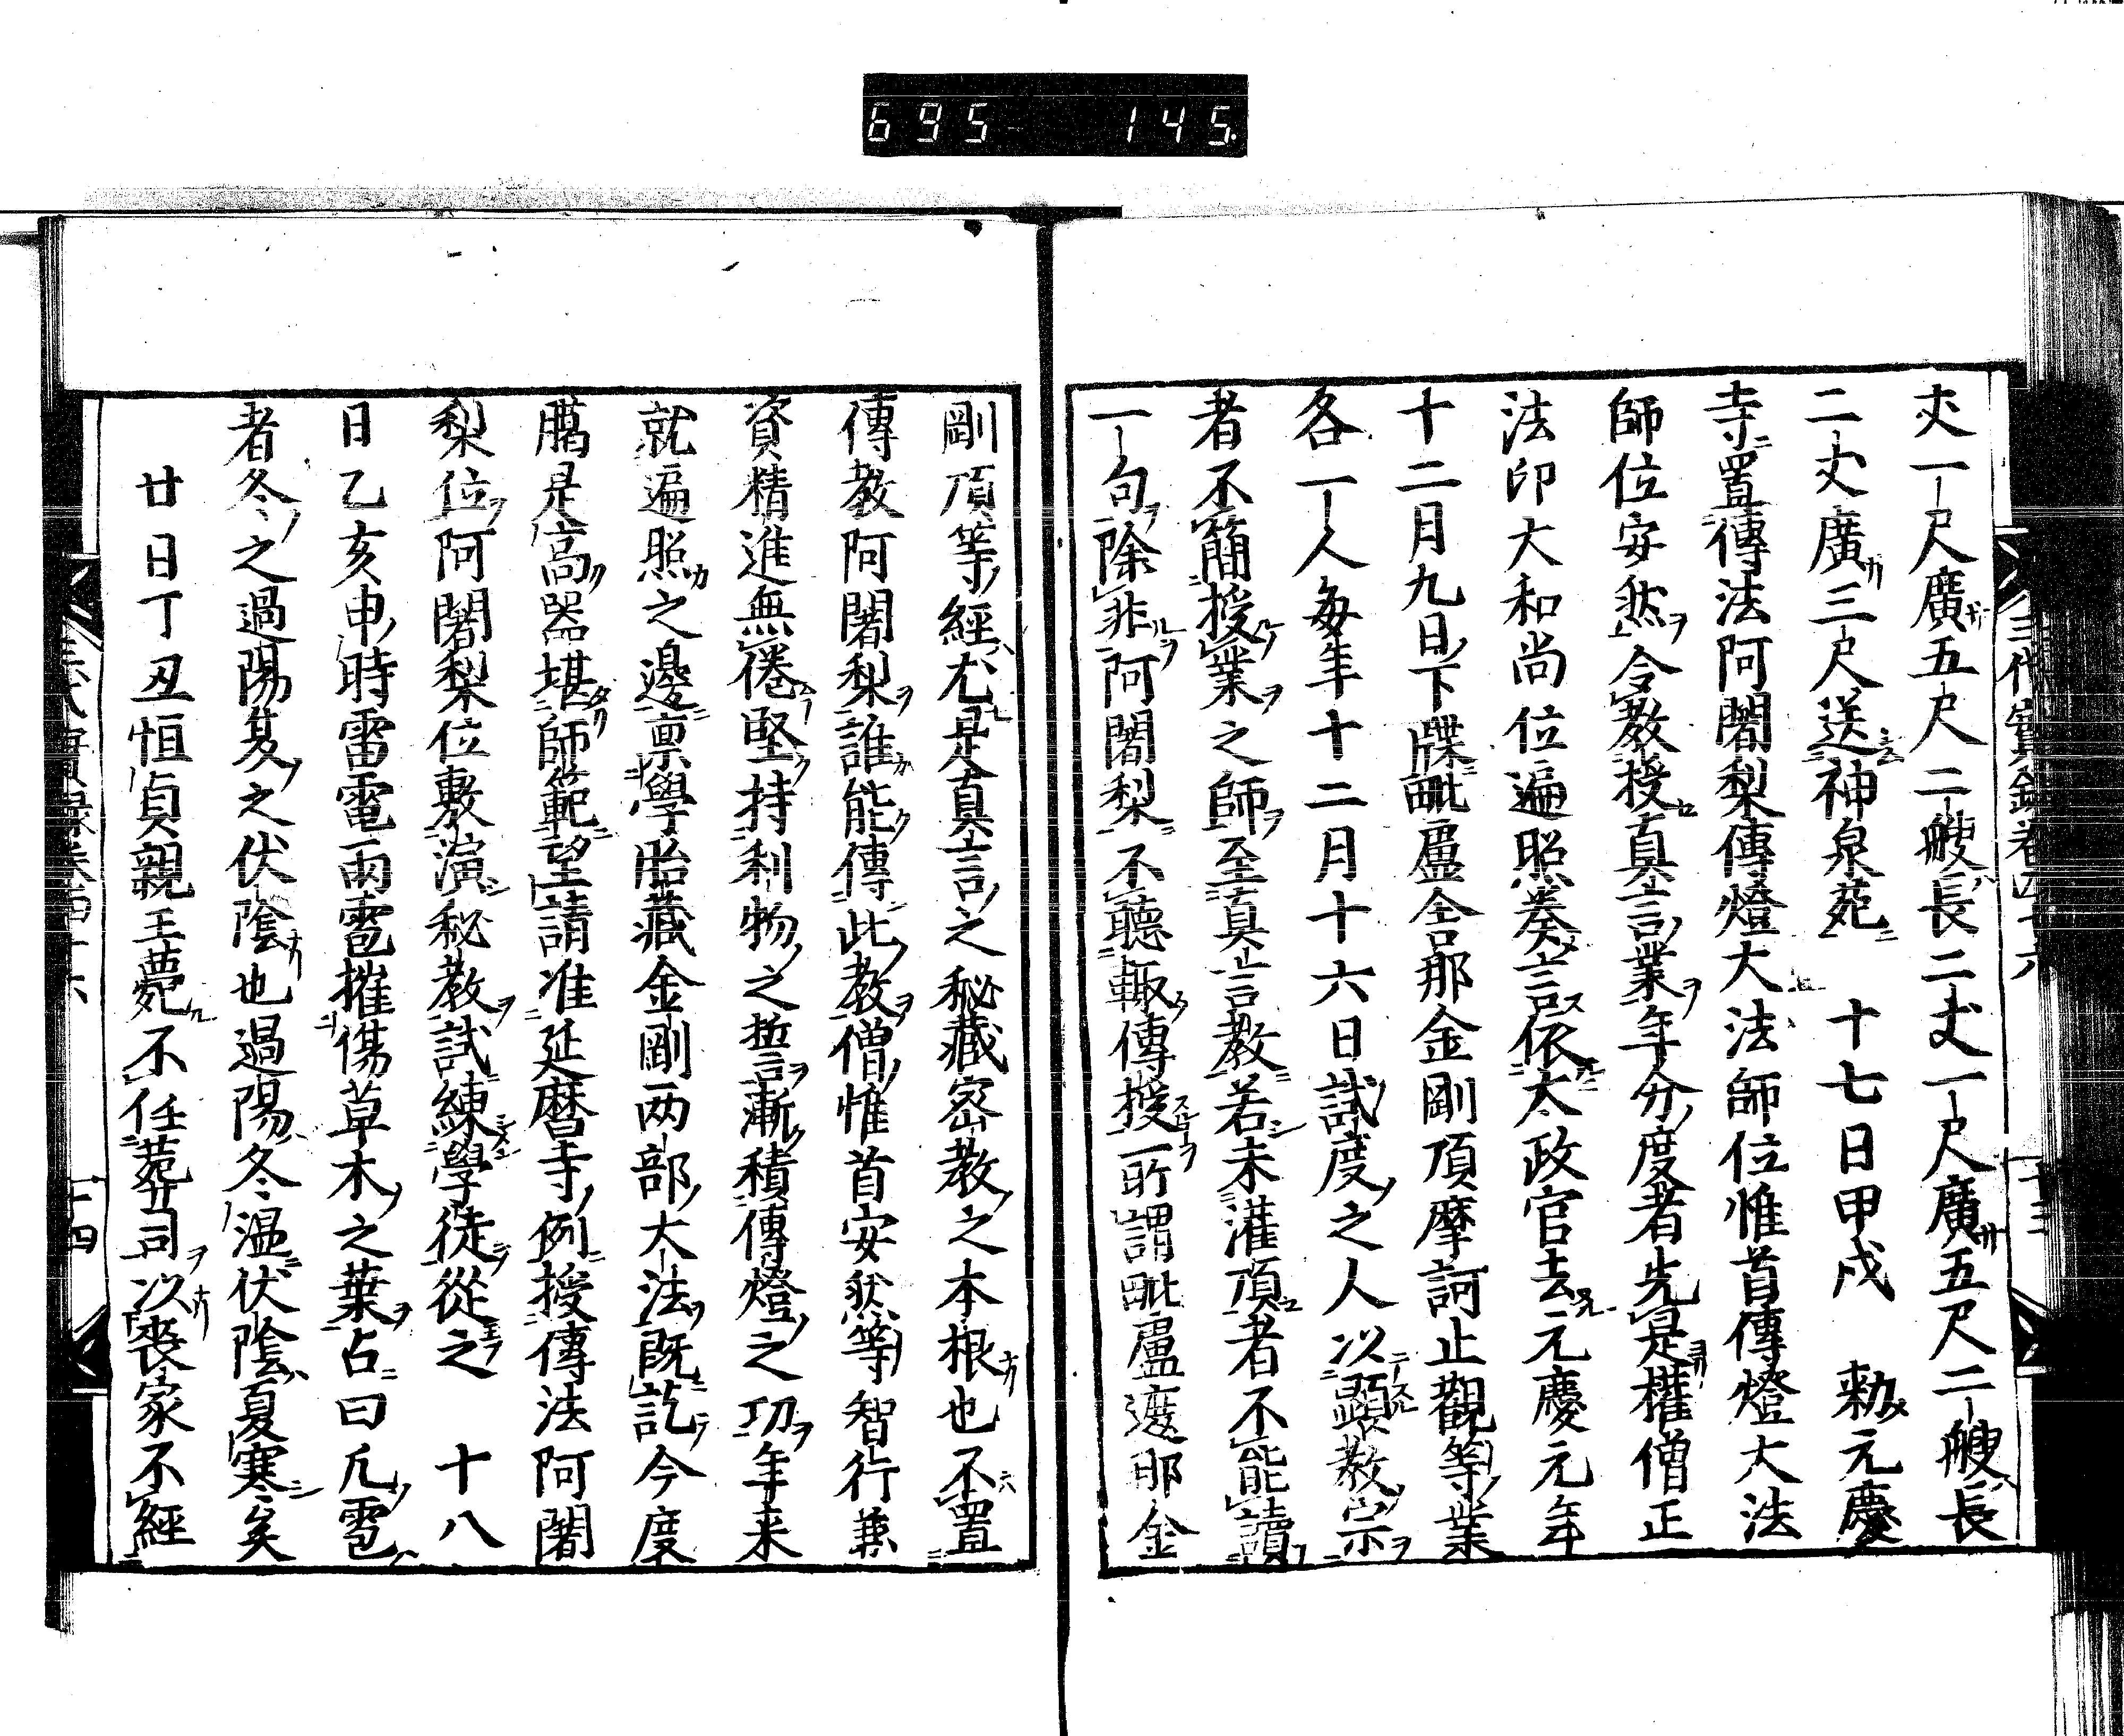 695 145
丈一尺廣五尺二艘長二丈一尺廣五尺二艘長
二丈廣三尺送神泉苑 十七日甲戌 勅元慶
寺置傳法阿闍梨傳燈大法師位惟首傳燈大法
師位安然令教授真言業年分度者先是權僧正
法印大和尚位遍照奏言依太政官去元慶元年
十二月九日下牒毗盧舎那金剛頂摩訶止觀等業
各一人每年十二月十六日試度之人以顯教宗
者不簡授業之師至真言教若未灌頂者不能讀
一句除非阿闍梨不聽輙傳授所謂毗盧遮那金
剛頂等經尤是真言之秘藏密教之本根也不置
傳教阿闍梨誰能傳此教僧惟首安然等智行兼
資精進無倦堅持利物之誓漸積傳燈之功年来
就遍照之邊禀學胎藏金剛两部大法既訖今度
﨟是高器堪師範望請准延暦寺例授傳法阿闍
梨位阿闍梨位敷演秘教試練學徒從之 十八
日乙亥申時雷電雨雹摧傷草木之葉占曰凡雹
者冬之過陽夏之伏陰也過陽冬温伏陰夏寒矣
廿日丁丑恒貞親王薨不任葬司以喪家不經
三代實録卷四十六 十三
三代實録卷四十六 十四